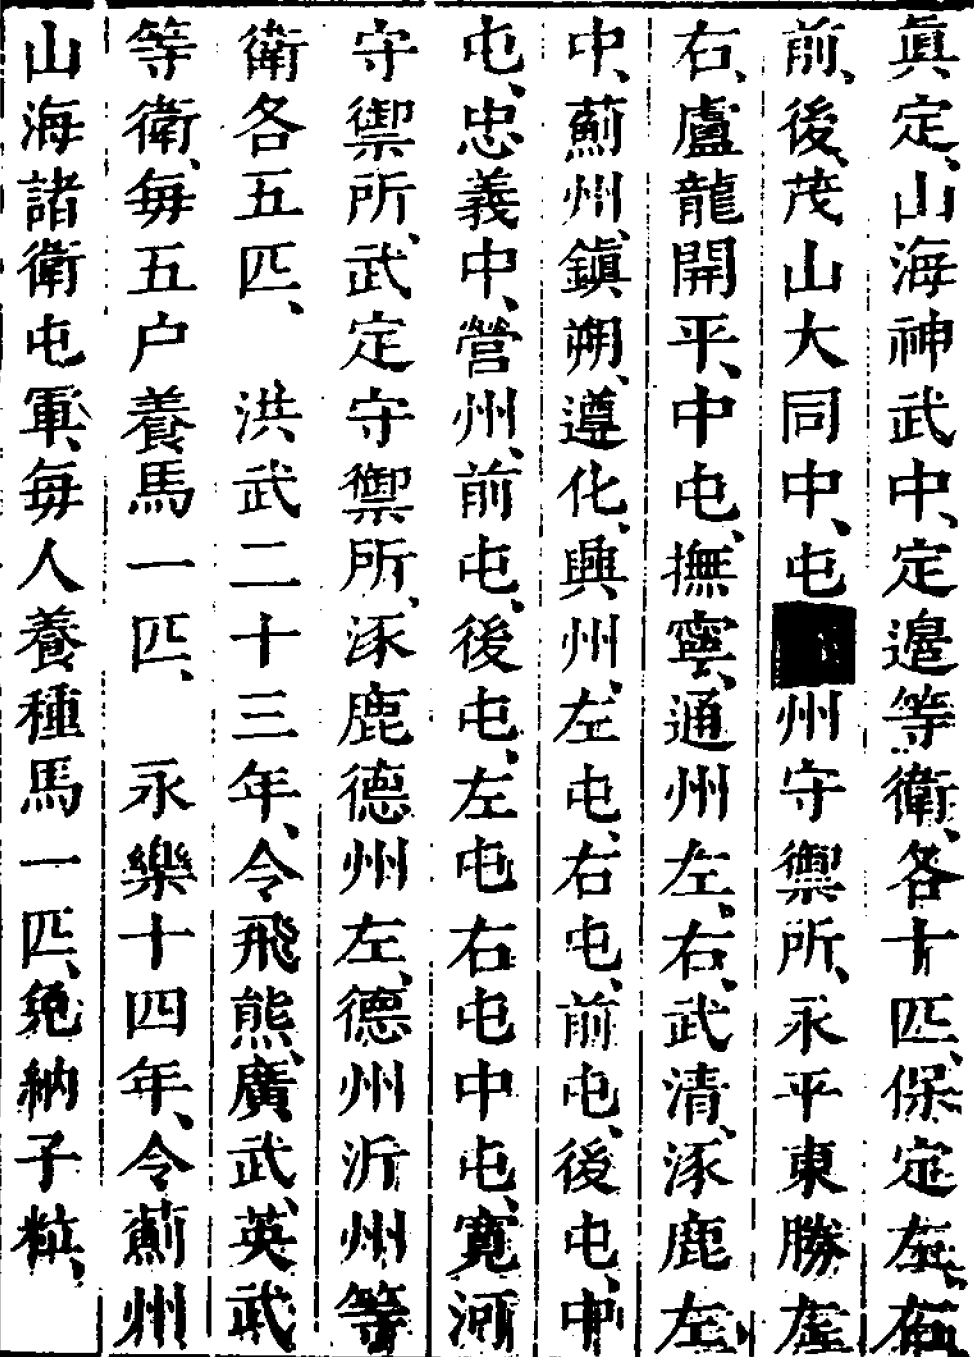 真定、山海神武中、定邊等衛、各十匹、保定左、右、
前、後、茂山大同中、屯州守禦所、永平東勝左
右、盧龍開平、中屯、撫寧、通州左、右、武清、涿鹿左、
中、薊州、鎮朔、遵化、興州、左屯、右屯、前屯、後屯、中
屯、忠義中、營州、前屯、後屯、左屯右屯中屯、寬河
守禦所、武定守禦所、涿鹿德州左、德州沂州等
衛各五匹、　洪武二十三年、令飛熊、廣武、英武
等衛、每五户養馬一匹、　永樂十四年、令薊州
山海諸衛屯軍、每人養種馬一匹、免納子粒、